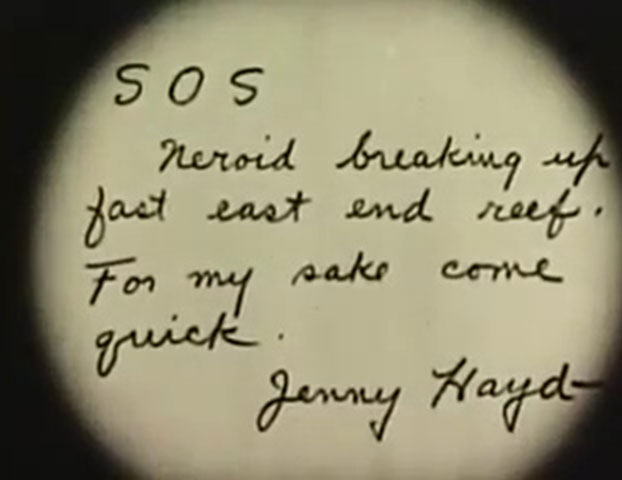 S O S
Neroid breaking up
fast east end reef.
For my sake come
quick.
Jenny Hayd